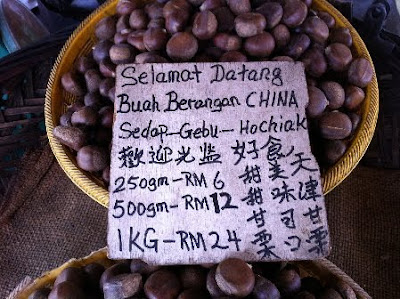 Selamat Datang
Buah Berangan CHINA
Sedap-Gebu-Hochiak
歡迎光监 好食
250gm-RM6
500gm-RM12
1KG-RM24
甜甜甘栗
美味可口
天津甘栗